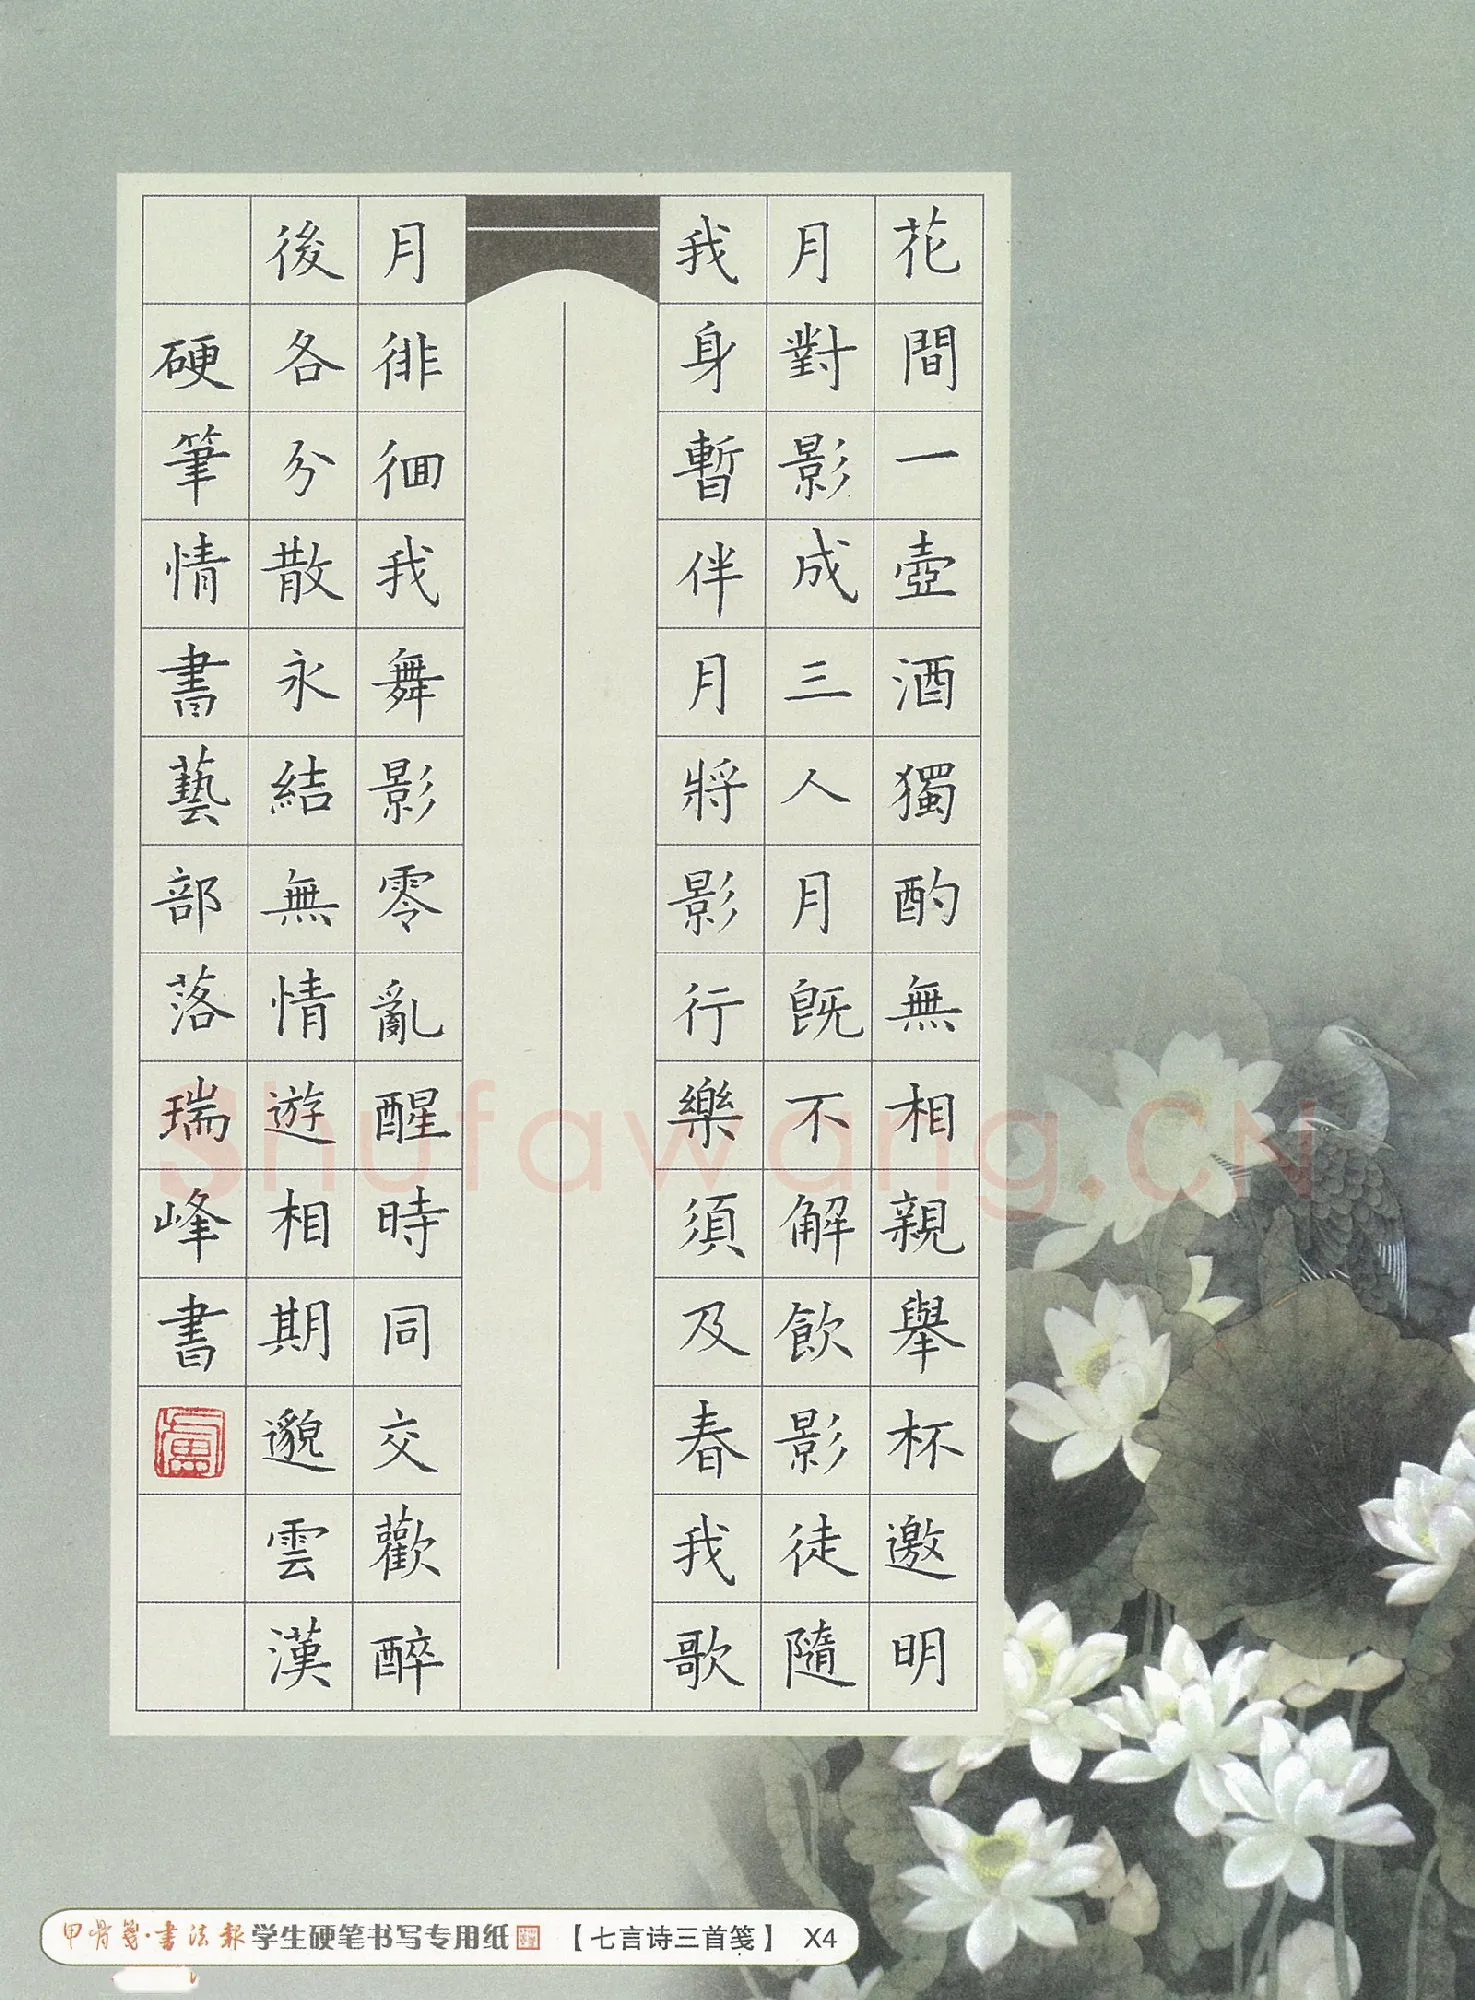 花間一壺酒獨酌無相親舉杯邀明
月對影成三人月既不解飲影徒隨
我身暫伴月將影行樂須及春我歌
月徘徊我舞影零亂醒時同交歡醉
後各分散永結無情遊相期邈雲漢
硬筆情書藝部落瑞峰書
Shufawang.CN
甲骨箋·書法報学生硬笔书写专用纸【七言诗三首笺】 X4